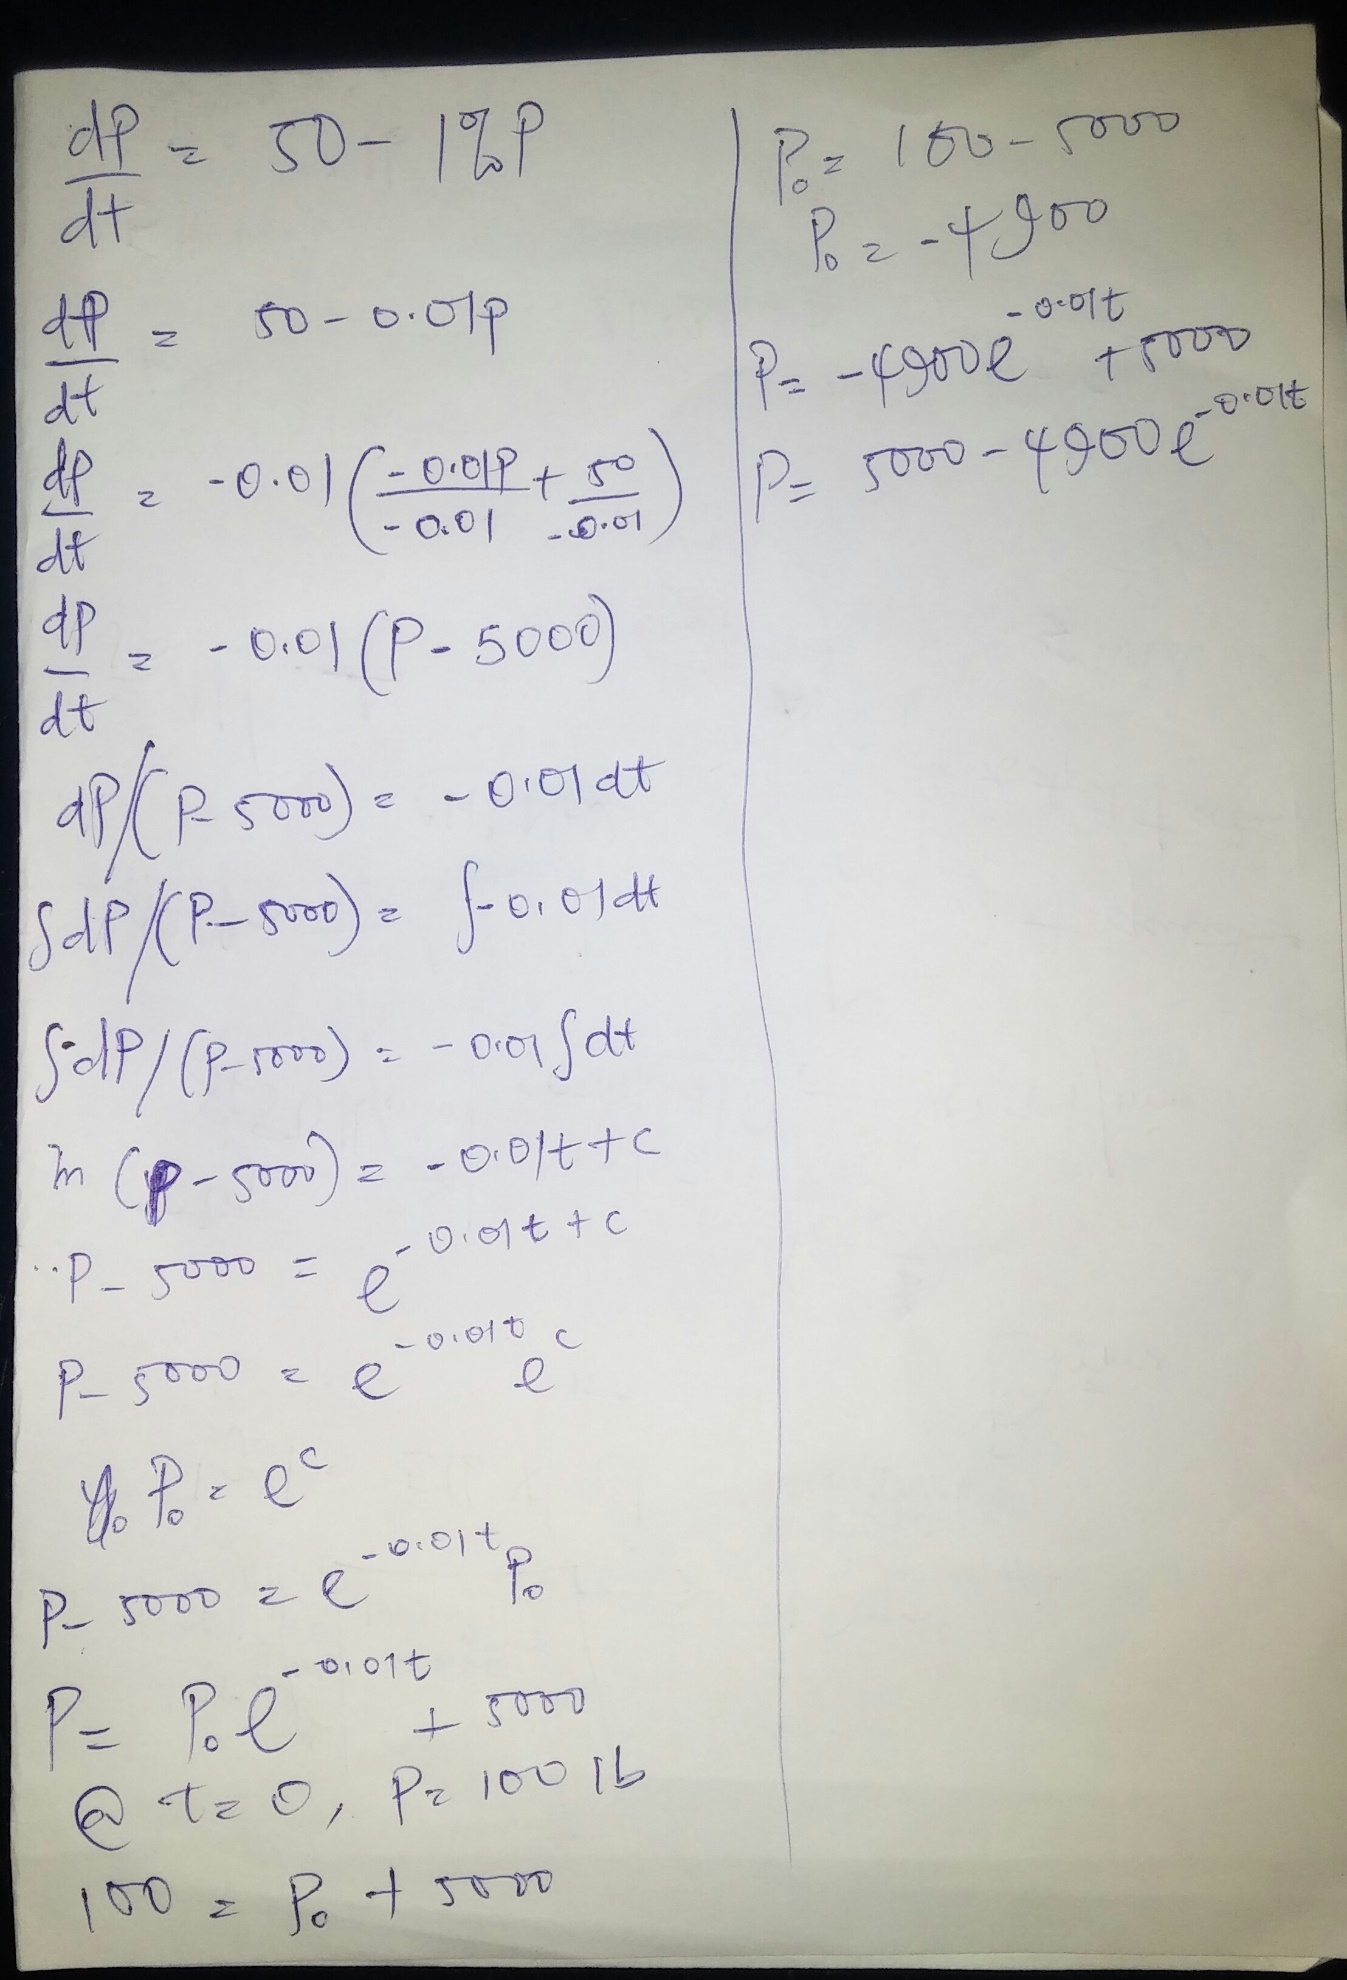 dP/dt = 50 - 1% P
dP/dt = 50 - 0.01P
dP/dt = -0.01 (-0.01P/-0.01 + 50/-0.01)
dP/dt = -0.01 (P - 5000)
dP/(P-5000) = -0.01dt
∫dP/(P-5000) = ∫-0.01dt
∫dP/(P-5000) = -0.01∫dt
ln (P-5000) = -0.01t + c
P - 5000 = e^(-0.01t + c)
P - 5000 = e^(-0.01t) e^c
P₀ = e^c
P - 5000 = e^(-0.01t) P₀
P = P₀e^(-0.01t) + 5000
@ t = 0, P = 100 lb
100 = P₀ + 5000
P₀ = 100 - 5000
P₀ = -4900
P = -4900e^(-0.01t) + 5000
P = 5000 - 4900e^(-0.01t)